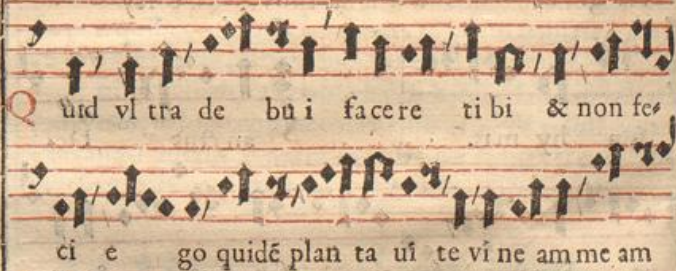 Quid vl tra de bu i facere ti bi & non fe-
ci e go quidē plan ta ui te vi ne am me am